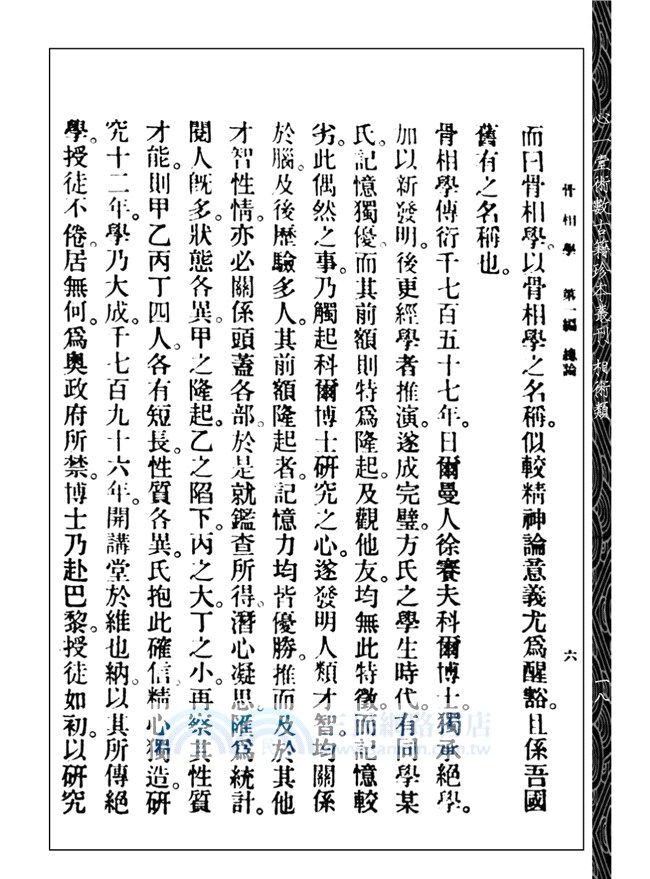 心一堂術數古籍珍本叢刊 相術類
一八
骨相學 第一編 總論
六
而曰骨相學。以骨相學之名稱。似較精神論意義尤爲醒豁。且係吾國
舊有之名稱也。
骨相學傳衍千七百五十七年。日爾曼人徐賽夫科爾博士。獨承絕學。
加以新發明。後更經學者推演。遂成完璧。方氏之學生時代。有同學某
氏。記憶獨優。而其前額則特爲隆起。及觀他友。均無此特徵。而記憶較
劣。此偶然之事。乃觸起科爾博士研究之心。遂發明人類才智。均關係
於腦。及後歷驗多人。其前額隆起者。記憶力均皆優勝。推而及於其他
才智性情。亦必關係頭蓋各部。於是就鑑查所得。潛心凝思。匯爲統計。
閱人旣多。狀態各異。甲之隆起。乙之陷下。丙之大。丁之小。再察其性質
才能。則甲乙丙丁四人。各有短長。性質各異。氏抱此確信。精心獨造。研
究十二年。學乃大成。千七百九十六年。開講堂於維也納。以其所傳絕
學。授徒不倦。居無何。爲奧政府所禁。博士乃赴巴黎。授徒如初。以研究
三民網路書店
www.sanmin.com.tw